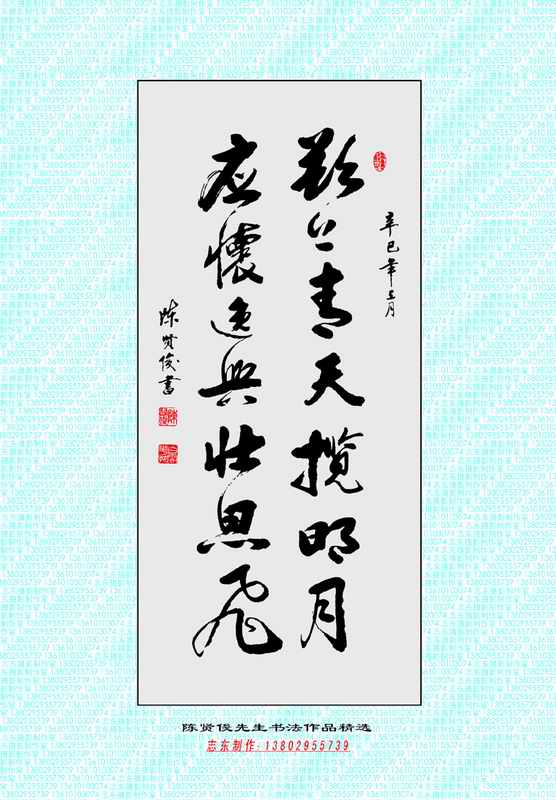 辛巳年五月
欲上青天揽明月
应懷逸兴壮思飞
陈贤俊書
陈贤俊先生书法作品精选
志东制作:13802955739